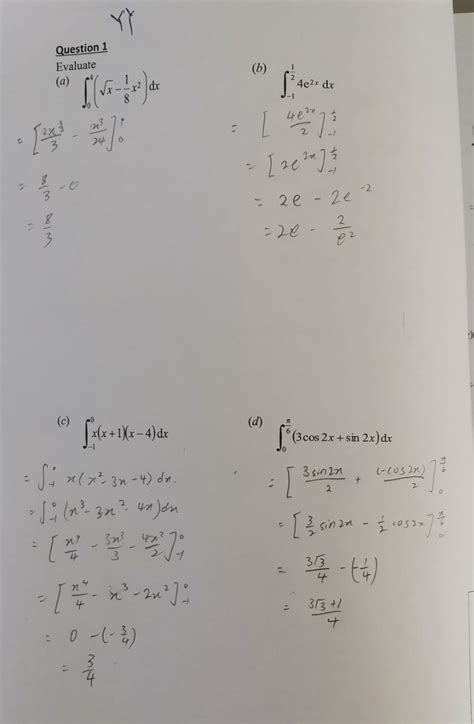 YY
Question 1
Evaluate
(a) ∫₀⁴ (√x − 1/8 x²) dx
= [2x^(3/2)/3 − x³/24]₀⁴
= 8/3 − 0
= 8/3
(b) ∫₋₁^(1/2) 4e^(2x) dx
= [4e^(2x)/2]₋₁^(1/2)
= [2e^(2x)]₋₁^(1/2)
= 2e − 2e^(−2)
= 2e − 2/e²
(c) ∫₋₁⁰ x(x+1)(x−4) dx
= ∫₋₁⁰ x(x² − 3x − 4) dx.
= ∫₋₁⁰ (x³ − 3x² − 4x) dx
= [x⁴/4 − 3x³/3 − 4x²/2]₋₁⁰
= [x⁴/4 − x³ − 2x²]₋₁⁰
= 0 − (−3/4)
= 3/4
(d) ∫₀^(π/6) (3cos 2x + sin 2x) dx
= [3sin2x/2 + (−cos2x)/2]₀^(π/6)
= [3/2 sin2x − 1/2 cos2x]₀^(π/6)
= 3√3/4 − (−1/4)
= (3√3 + 1)/4